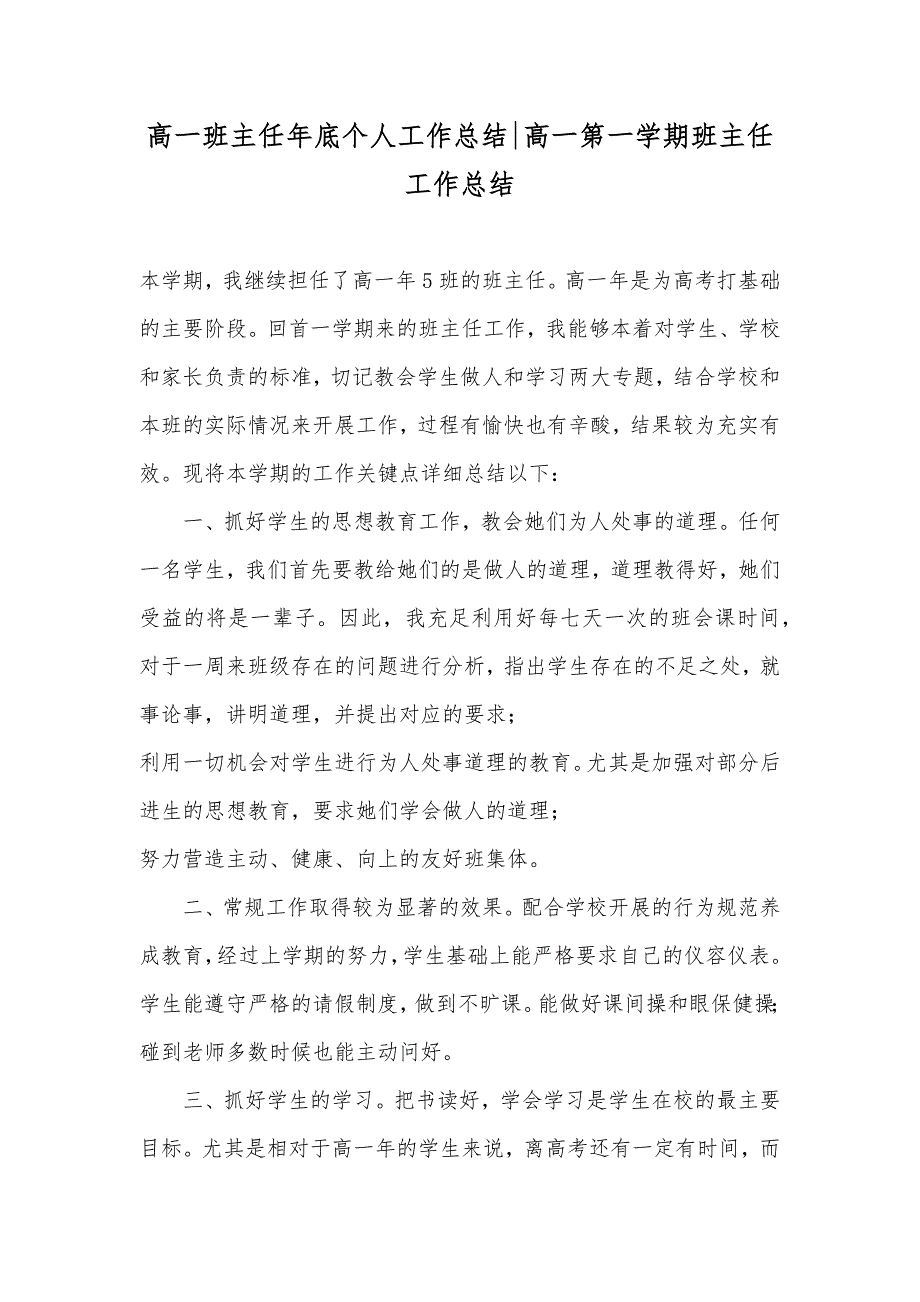 高一班主任年底个人工作总结|高一第一学期班主任
工作总结
本学期，我继续担任了高一年 5 班的班主任。高一年是为高考打基础
的主要阶段。回首一学期来的班主任工作，我能够本着对学生、学校
和家长负责的标准，切记教会学生做人和学习两大专题，结合学校和
本班的实际情况来开展工作，过程有愉快也有辛酸，结果较为充实有
效。现将本学期的工作关键点详细总结以下：
一、抓好学生的思想教育工作，教会她们为人处事的道理。任何
一名学生，我们首先要教给她们的是做人的道理，道理教得好，她们
受益的将是一辈子。因此，我充足利用好每七天一次的班会课时间，
对于一周来班级存在的问题进行分析，指出学生存在的不足之处，就
事论事，讲明道理，并提出对应的要求；
利用一切机会对学生进行为人处事道理的教育。尤其是加强对部分后
进生的思想教育，要求她们学会做人的道理；
努力营造主动、健康、向上的友好班集体。
二、常规工作取得较为显著的效果。配合学校开展的行为规范养
成教育，经过上学期的努力，学生基础上能严格要求自己的仪容仪表。
学生能遵守严格的请假制度，做到不旷课。能做好课间操和眼保健操；
碰到老师多数时候也能主动问好。
三、抓好学生的学习。把书读好，学会学习是学生在校的最主要
目标。尤其是相对于高一年的学生来说，离高考还有一定有时间，而